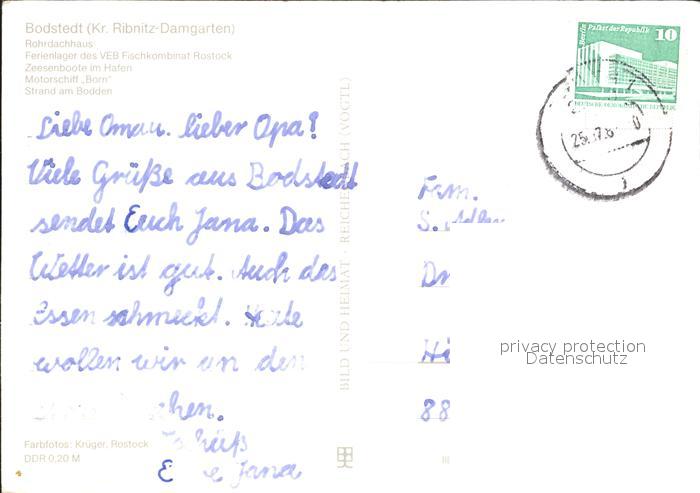 Bodstedt (Kr. Ribnitz-Damgarten)
Rohrdachhaus
Ferienlager des VEB Fischkombinat Rostock
Zeesenboote im Hafen
Motorschiff „Born"
Strand am Bodden
Liebe Oma u. lieber Opa!
Viele Grüße aus Bodstedt
sendet Euch Jana. Das
Wetter ist gut. Auch das
Essen schmeckt. Heute
wollen wir an den
chen.
Tschüß
Jana
Farbfotos: Krüger, Rostock
DDR 0,20 M
BILD UND HEIMAT · REICHENBACH (VOGTL)
Berlin Palast der Republik 10
DEUTSCHE DEMOKRATISCHE REPUBLIK
Fam.
S. Adler
Dr
Hi
88
privacy protection
Datenschutz